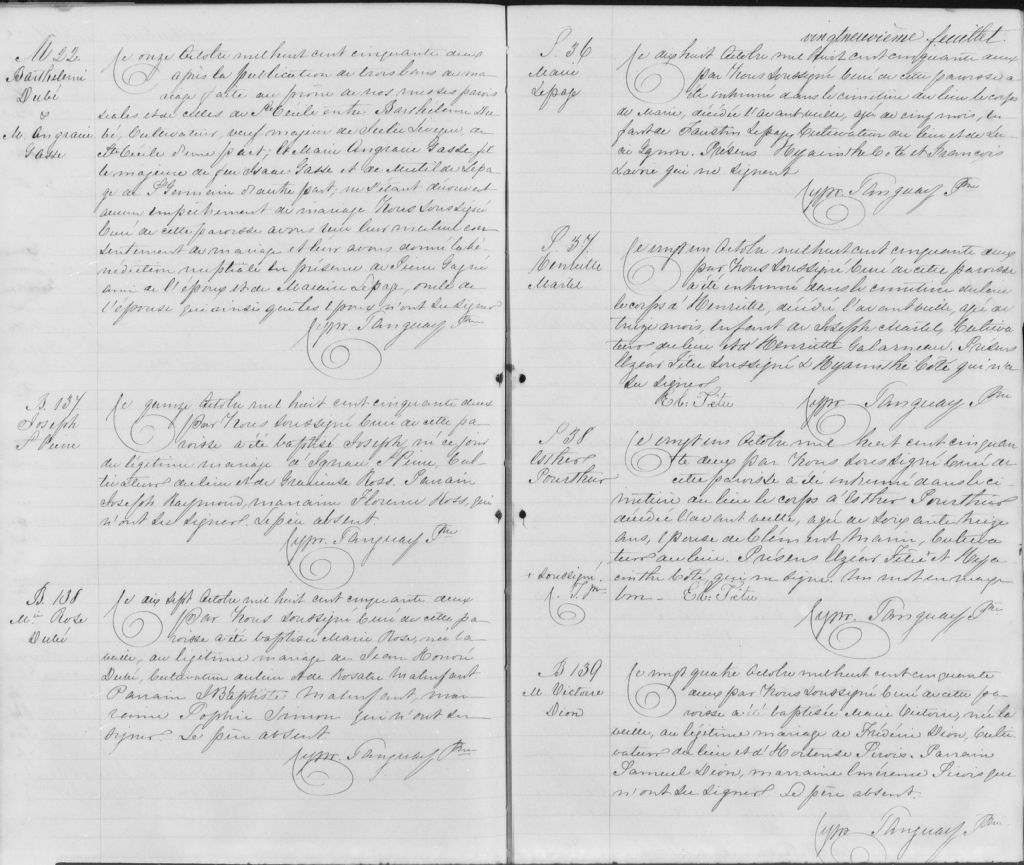 M 22
Barthelemi
Dubé
&
M. Angraiie
Gasse
Le onze Octobre mil huit cent cinquante deux
après la publication de trois bans de ma-
riage faite au prône de nos messes parois
siales et de celles de Ste Cécile entre Barthélemi Du-
bé, Cultivateur, veuf majeur de Lévêque, de
Ste Cécile d'une part; et Marie Gasse, fil
le majeure de feu Isaac Gasse et de Mutilde Lepa-
ge de St Germain d'autre part; ne s'étant découvert
aucun empêchement de mariage Nous Soussigné
Curé de cette paroisse avons reçu leur mutuel con
sentement de mariage et leur avons donné la bé-
nédiction nuptiale en présence de Pierre Gagné
ami de l'époux et de Lepage, oncle de
l'épouse qui ainsi que les époux n'ont su signer
Cypr. Tanguay Ptre
B. 137
Joseph
St Pierre
Le quinze Octobre mil huit cent cinquante deux
Par Nous Soussigné Curé de cette pa-
roisse a été baptisé Joseph, né ce jour
du légitime mariage d'Ignace St Pierre, Cul-
tivateur du lieu et de Gracieuse Ross. Parrain
Joseph Raymond, marraine Florence Ross, qui
n'ont su signer. Le père absent.
Cypr. Tanguay Ptre
B. 138
Mie Rose
Dubé
Le dix sept Octobre mil huit cent cinquante deux
Par Nous Soussigné Curé de cette pa-
roisse a été baptisée Marie Rose, née la
veille, du légitime mariage de Jean Honoré
Dubé, Cultivateur du lieu et de Rosalie Malenfant
Parrain J. Baptiste Malenfant, mar-
raine Sophie Simon qui n'ont su
signer. Le père absent.
Cypr. Tanguay Ptre
vingtneuvième feuillet.
S. 36
Marie
Lepage
Le dix huit Octobre mil huit cent cinquante deux
par Nous Soussigné Curé de cette paroisse a
été inhumé dans le cimetière du lieu le corps
de Marie, décédée l'avant veille, agée de cinq mois, En
fant de Faustin Lepage, Cultivateur du lieu et de Lu-
ce Gagnon. Présens Hyacinthe Coté et Francois
Lavoie qui ne signent
Cypr. Tanguay Ptre
S. 37
Henriette
Martel
Le vingt un Octobre mil huit cent cinquante deux
par Nous Soussigné Curé de cette paroisse
a été inhumé dans le cimetière du lieu
le corps d'Henriette, décédée l'avant veille, agée de
treize mois, Enfant de Joseph Martel, Cultiva
teur du lieu et d'Henriette Galarneau. Présens
Elzéar Fétu Soussigné & Hyacinthe Coté qui n'a
su signer
El: Fétu
Cypr. Tanguay Ptre
S. 38
Esther
Pourthier
Le vingt un Octobre mil huit cent cinquan
te deux par Nous Soussigné Curé de
cette paroisse a été inhumé dans le ci-
metière du lieu le corps d'Esther Pourthier
décédée l'avant veille, agée de soixante treize
ans, épouse de Clément Morin, Cultiva
teur du lieu. Présens Elzéar Fétu + et Hya-
cinthe Coté, qui ne signe. Un mot en marge
bon - El: Fétu
+ soussigné.
C. T. Ptre
Cypr. Tanguay Ptre
B 139
M. Victoire
Dion
Le vingt quatre Octobre mil huit cent cinquante
deux par Nous Soussigné Curé de cette pa-
roisse a été baptisée Marie Victoire, née la
veille, du légitime mariage de Frédéric Dion, Culti-
vateur du lieu et d'Hortense Pirois. Parrain
Samuel Dion, marraine Emérence Pirois qui
n'ont su signer Le père absent.
Cypr Tanguay Ptre